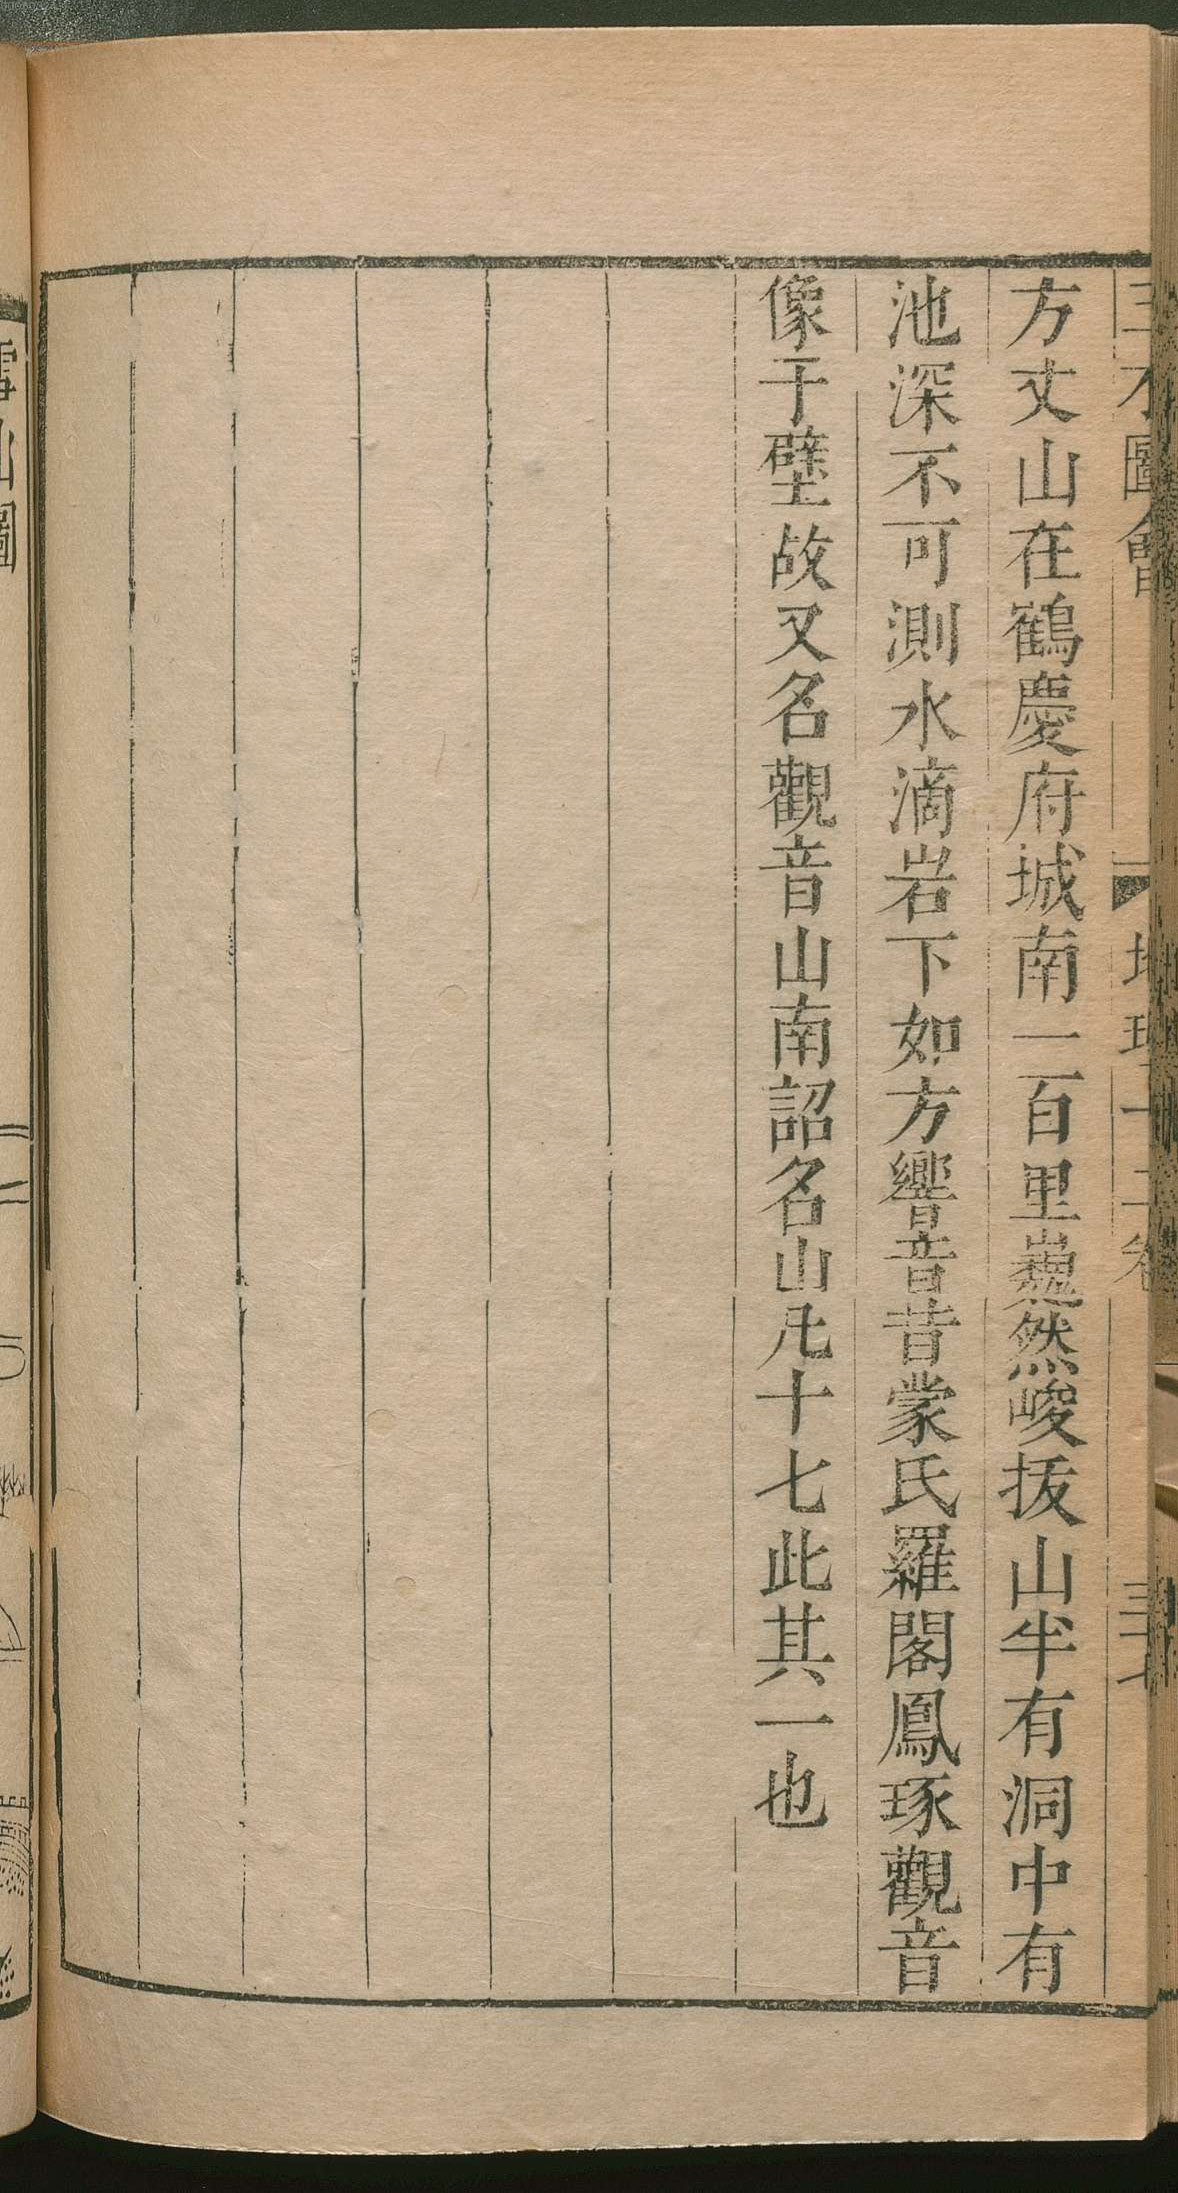 三才圖會 地理十二卷
方丈山在鶴慶府城南一百里巍然峻拔山半有洞中有
池深不可測水滴岩下如方響音昔蒙氏羅閣鳳琢觀音
像于壁故又名觀音山南詔名山凡十七此其一也
雪山圖